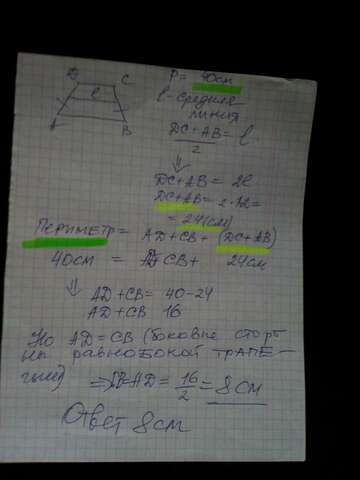 D C
l
A B
P = 40см
l - средняя
линия
DC+AB = l
2
⇓
DC+AB = 2l
DC+AB = 2·12 =
= 24(см)
Периметр = AD+CB+ (DC+AB)
40см = AD CB+ 24см
⇓ AD+CB= 40-24
AD+CB 16
Но AD=CB (боковые
равнобокой трапе-
=AD = 16 = 8см
2
Ответ 8см